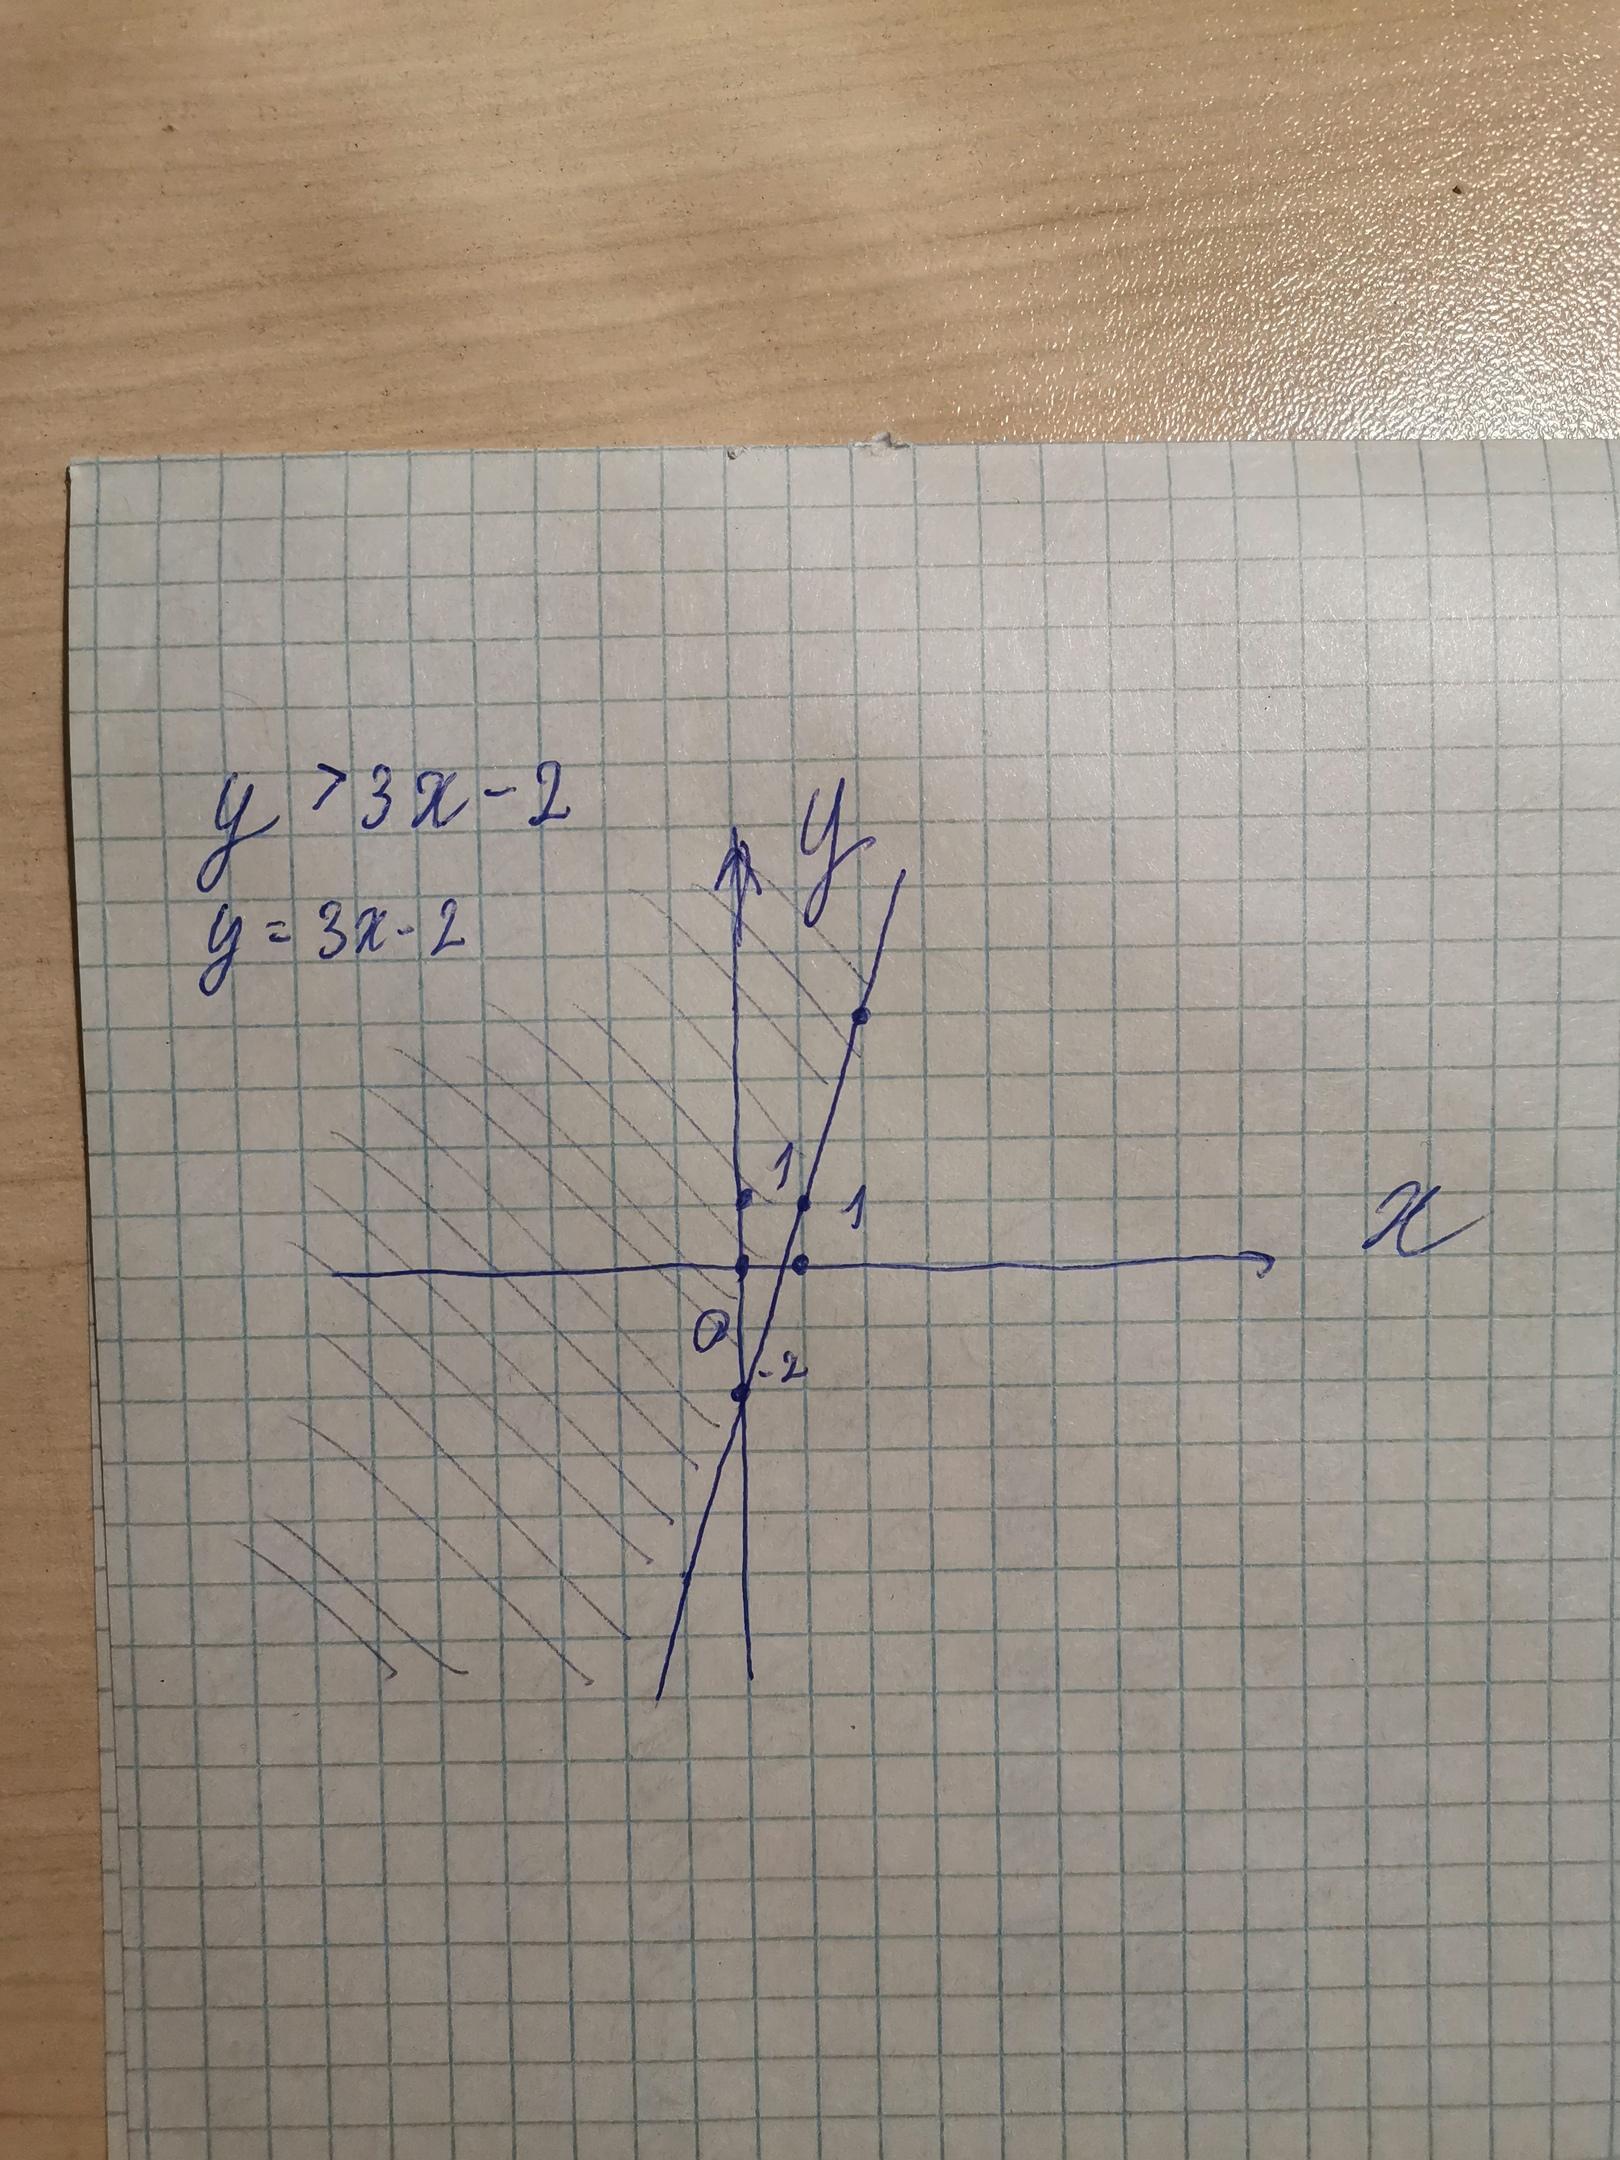 y > 3x - 2
y = 3x - 2
y
1
1
x
0
-2